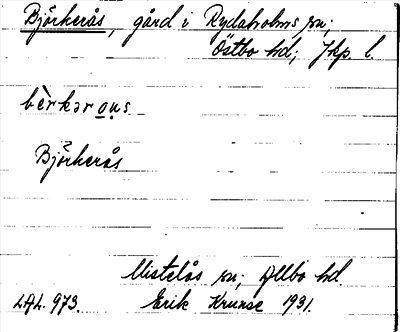 Björkerås, gård i Rydaholms sn;
Östbo hd; Jkp. l.
bèrkərous
Björkerås
Mistelås sn; Allbo hd.
LAL. 973. Erik Krunse 1931.